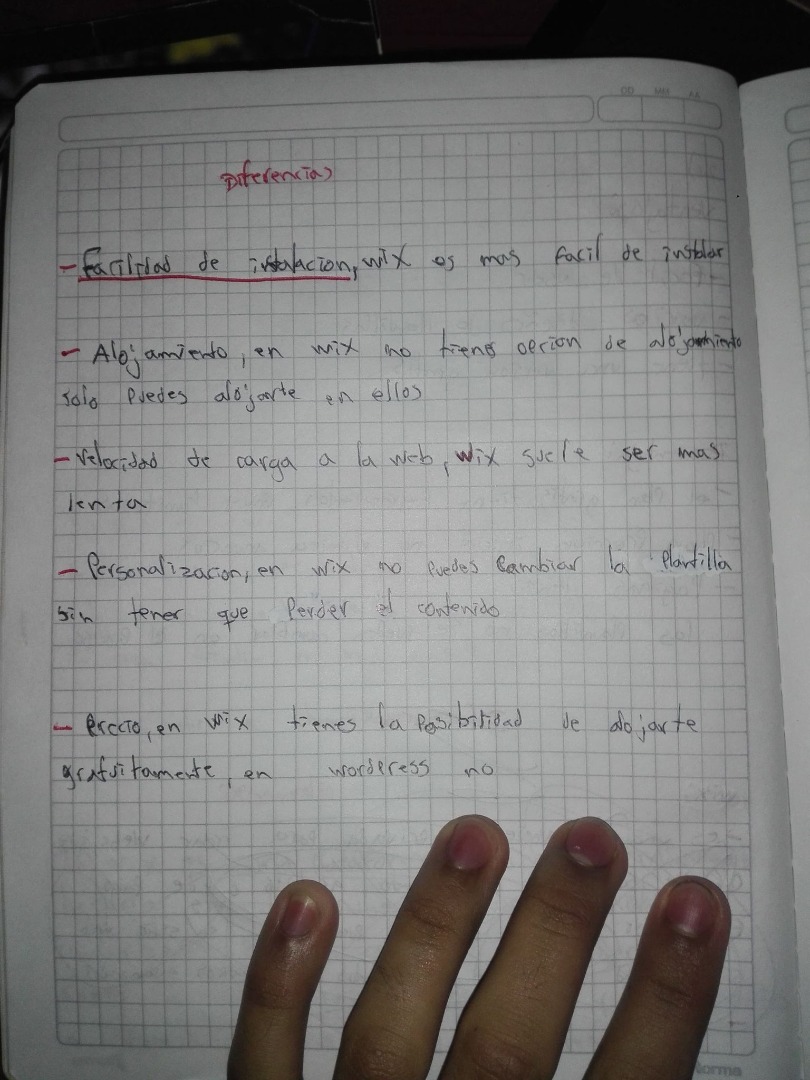 DD MM AA
Diferencias
- Facilidad de instalacion, wix es mas facil de instalar
- Alojamiento, en wix no tienes opcion de alojamiento
solo puedes alojarte en ellos
- Velocidad de carga a la web, wix suele ser mas
lenta
- Personalizacion, en wix no puedes cambiar la plantilla
sin tener que perder el contenido
- Precio, en wix tienes la posibilidad de alojarte
gratuitamente, en wordpress no
Norma